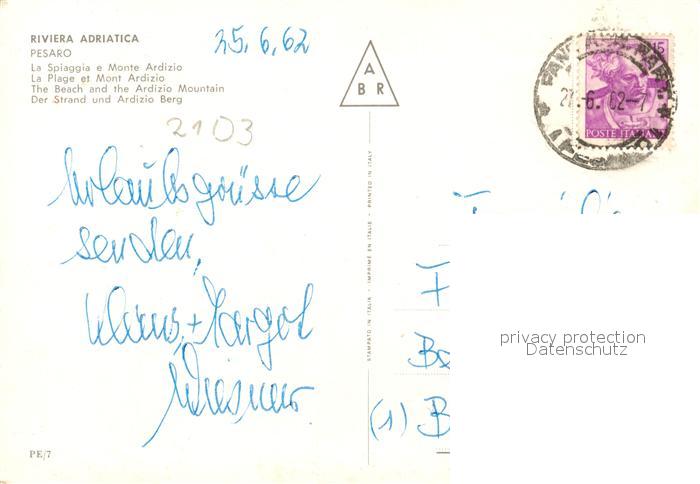 RIVIERA ADRIATICA
PESARO
La Spiaggia e Monte Ardizio
La Plage et Mont Ardizio
The Beach and the Ardizio Mountain
Der Strand und Ardizio Berg
25.6.62
2103
A
B R
15
POSTE ITALIANE
Urlaubsgrüsse
senden,
Klaus + Margot
Wiesner
STAMPATO IN ITALIA - IMPRIMÉ EN ITALIE - PRINTED IN ITALY
F
B
(1) B
privacy protection
Datenschutz
PE/7